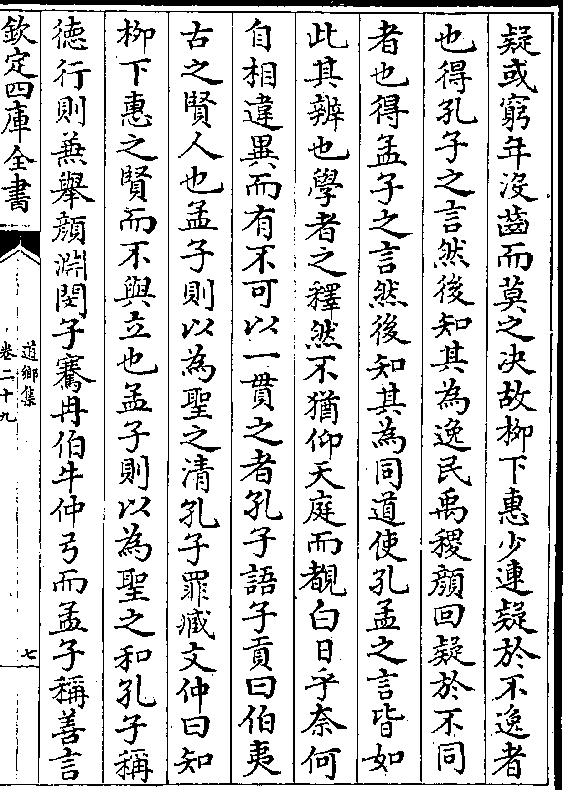 疑或窮年沒齒而莫之决故柳下惠少連疑於不逸者
也得孔子之言然後知其為逸民禹稷顔回疑於不同
者也得孟子之言然後知其為同道使孔孟之言皆如
此其辨也學者之釋然不猶仰天庭而覩白日乎奈何
自相違異而有不可以一貫之者孔子語子貢曰伯夷
古之賢人也孟子則以為聖之清孔子罪臧文仲曰知
柳下惠之賢而不與立也孟子則以為聖之和孔子稱
德行則兼舉顔淵閔子騫冉伯牛仲弓而孟子稱善言
欽定四庫全書
道鄉集
卷二十九
七